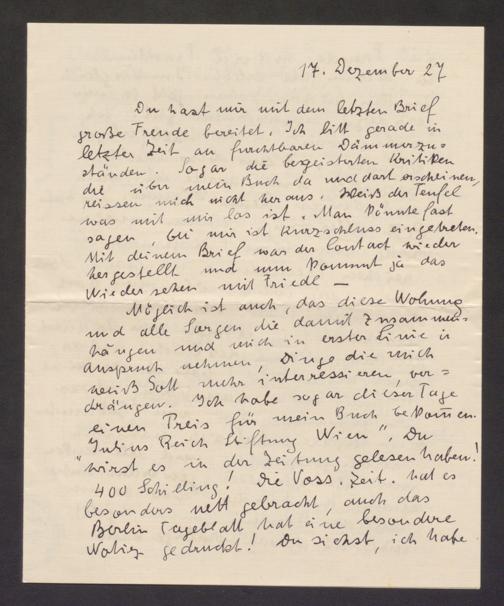 17. Dezember 27
Du hast mir mit dem letzten Brief
große Freude bereitet. Ich litt gerade in
letzter Zeit an furchtbaren Dämmerzu-
ständen. Sogar die begeisterten Kritiken
die über mein Buch da und dort erscheinen,
reissen mich nicht heraus. Weiß der Teufel
was mit mir los ist. Man könnte fast
sagen, bei mir ist Kurzschluss eingetreten.
Mit deinem Brief war der Contact wieder
hergestellt und nun kommt ja das
Wiedersehen mit Friedl —
Möglich ist auch, das diese Wohnung
und alle Sorgen die damit zusammen-
hängen und mich in erster Linie in
Anspruch nehmen, Dinge die mich
weiß Gott mehr interessieren, ver=
drängen. Ich habe sogar dieser Tage
einen Preis für mein Buch bekommen.
"Julius Reich Stiftung Wien", Du
wirst es in der Zeitung gelesen haben!
400 Schilling! Die Voss. Zeit. hat es
besonders nett gebracht, auch das
Berlin Tageblatt hat eine besondere
Notiz gedruckt! Du siehst, ich habe